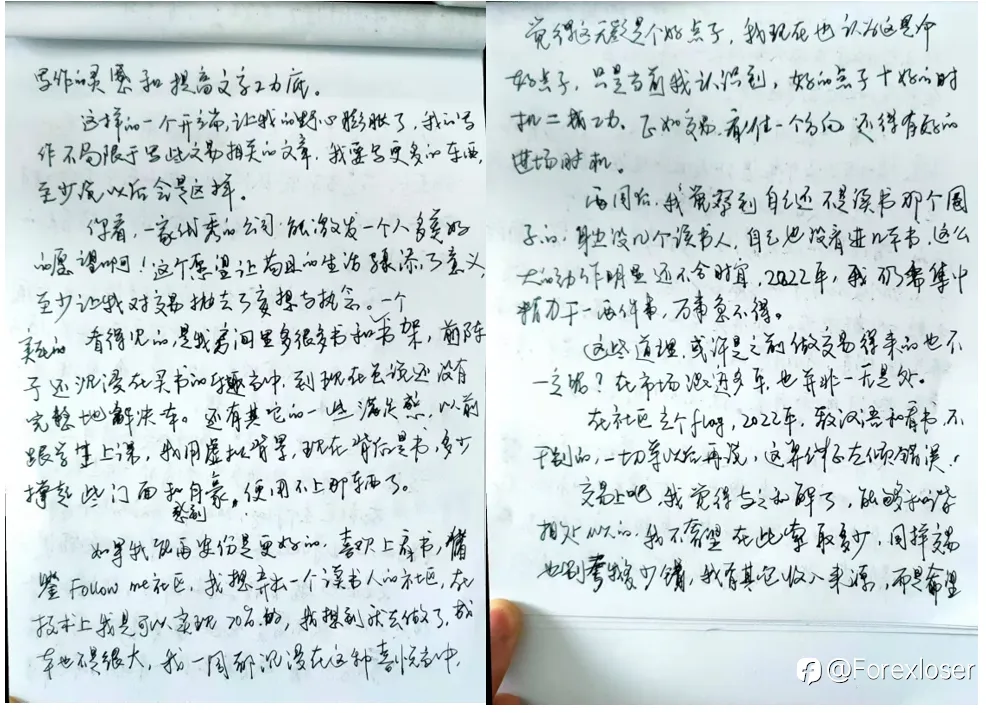 写作的灵感和提高文字功底。
这样的一个开端，让我的野心膨胀了，我的写
作不局限于写些交易相关的文章，我要写更多的东西，
至少说以后会是这样。
你看，一家优秀的公司能激发一个人多美好
的愿望啊！这个愿望让苟且的生活添了意义，
至少让我对交易抛去了妄想与执念。一个
真正的 看得见的，是我房间里多很多书和书架，前阵
子还沉浸在买书的乐趣之中，到现在会说还没有
完整地解决本。还有其它的一些满足感，以前
跟学生上课，我用虚拟背景，现在背后是书，多少
撑起些门面和自豪感，便用不上那东西了。
如果我说再安份是更好的，喜欢上看书，借
鉴Follow me社区，我想弄出一个读书人的社区，在
技术上我是可以实现70%的，我想到就去做了，成
本也不是很大，我一周都沉浸在这种喜悦之中，
觉得这无疑是个好点子，我现在也认为这是个
好点子，只是当前我认识到，好的点子+好的时
机=成功。正如交易，看住一个方向还得有好的
进场时机。
两周后，我觉察到自己还不是读书那个圈
子的，身边没几个读书人，自己也没看进几本书，这么
大的动作明显还不合时宜，2022年，我仍需集中
精力干一两件事，万事急不得。
这些道理，或许是之前做交易得来的也不
一定呢？在市场混迹多年，也并非一无是处。
在社区立个flag，2022年，致汉语和看书，不
干别的，一切等以后再说，这算纠正左倾错误！
交易上吧，我觉得与之和解了，能够和谐
相处似的，我不奢望在此索取多少，同样交易
也别夸我多少错，我有其它收入来源，而是希望
@Forexloser